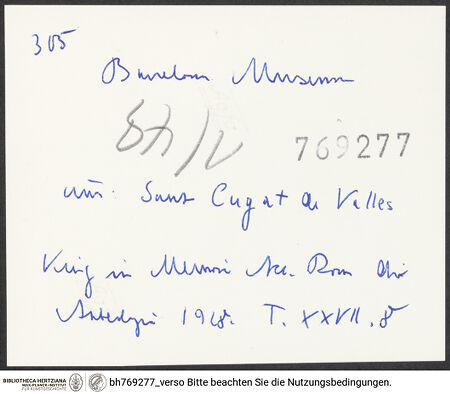 305
Barcelona Museum
769277
Sant Cugat de Valles
King in Memoir Acc. Rom
1928. T. XXVII. 8
BIBLIOTHECA HERTZIANA
MAX-PLANCK-INSTITUT
FÜR KUNSTGESCHICHTE
bh769277_verso Bitte beachten Sie die Nutzungsbedingungen.